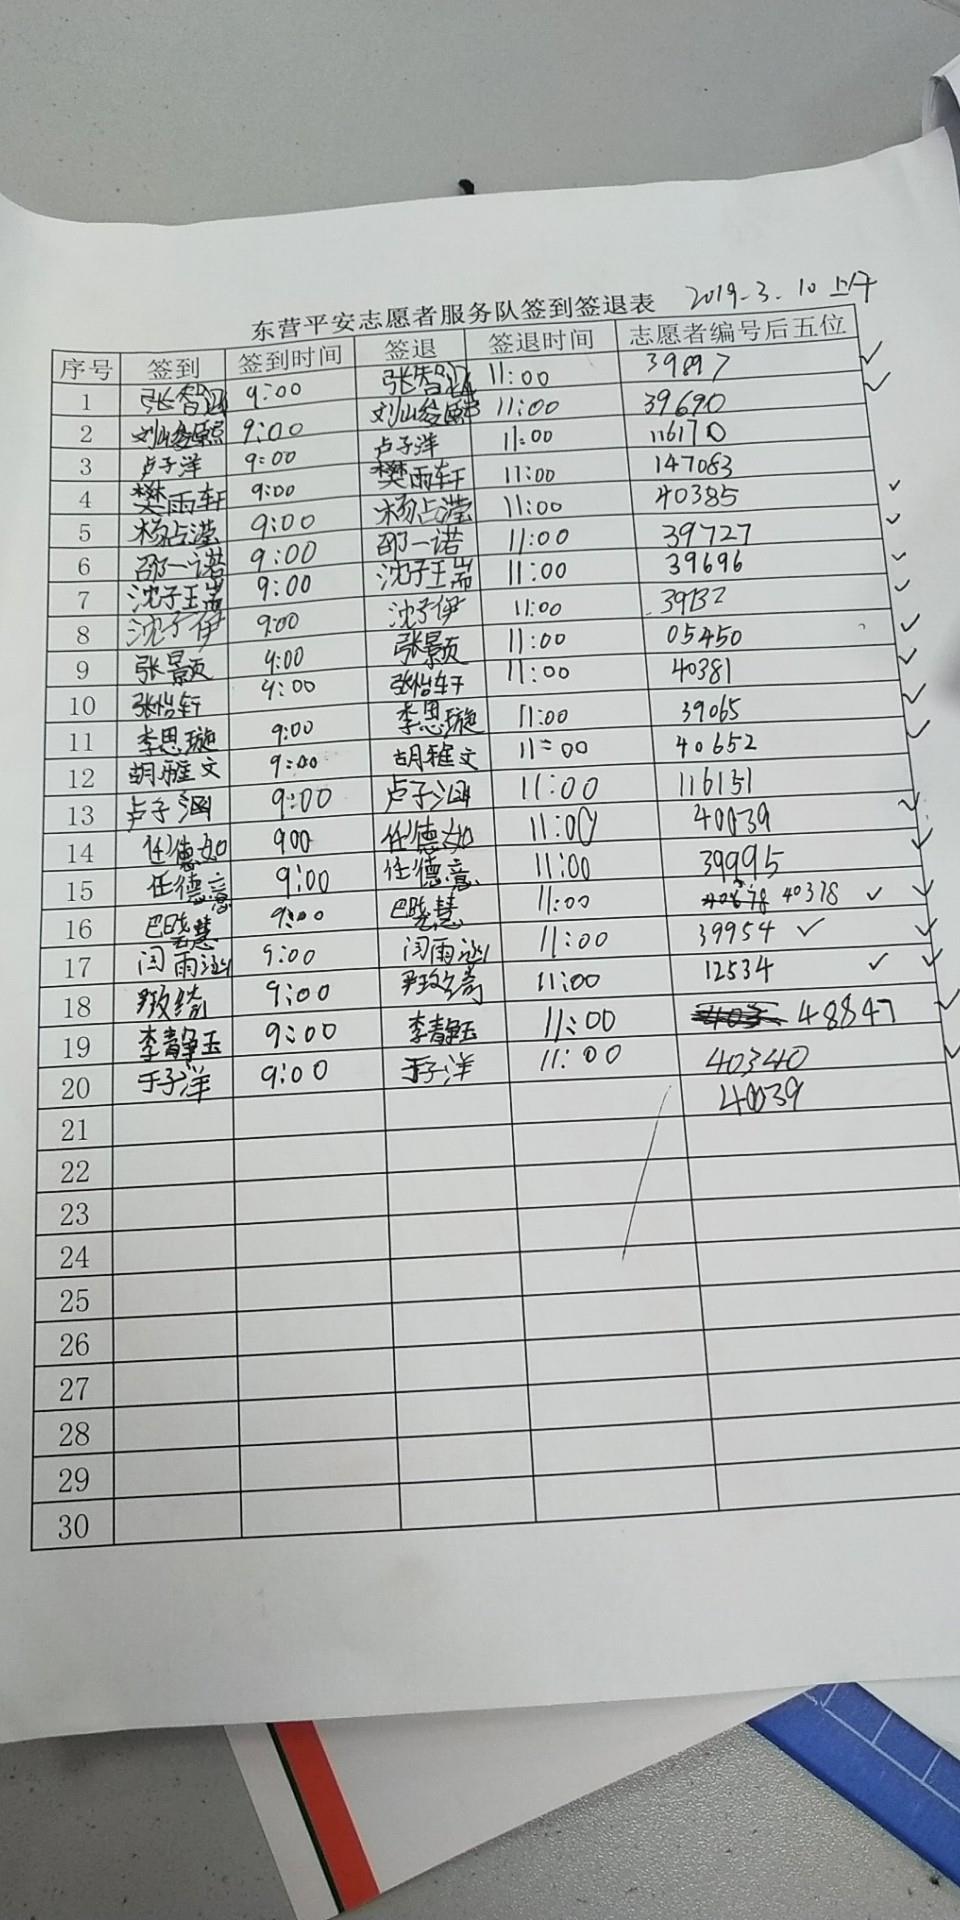 2019.3.10 上午
东营平安志愿者服务队签到签退表
序号 签到 签到时间 签退 签退时间 志愿者编号后五位
1 张智涵 9:00 张智涵 11:00 39897
2 刘峻熙 9:00 刘峻熙 11:00 39690
3 卢子洋 9:00 卢子洋 11:00 116170
4 樊雨轩 9:00 樊雨轩 11:00 147083
5 杨占滢 9:00 杨占滢 11:00 40385
6 邵一诺 9:00 邵一诺 11:00 39727
7 沈子王耑 9:00 沈子王耑 11:00 39696
8 沈子伊 9:00 沈子伊 11:00 39132
9 张景页 9:00 张景页 11:00 05450
10 张怡轩 9:00 张怡轩 11:00 40381
11 李思璇 9:00 李思璇 11:00 39065
12 胡雅文 9:00 胡雅文 11:00 40652
13 卢子涵 9:00 卢子涵 11:00 116151
14 任德如 900 任德如 11:00 40039
15 任德意 9:00 任德意 11:00 39995
16 巴晓慧 9:00 巴晓慧 11:00 40378
17 闫雨涵 9:00 闫雨涵 11:00 39954
18 9:00 11:00 12534
19 李静玉 9:00 李静玉 11:00 48847
20 于子洋 9:00 于子洋 11:00 40340
21 40039
22
23
24
25
26
27
28
29
30